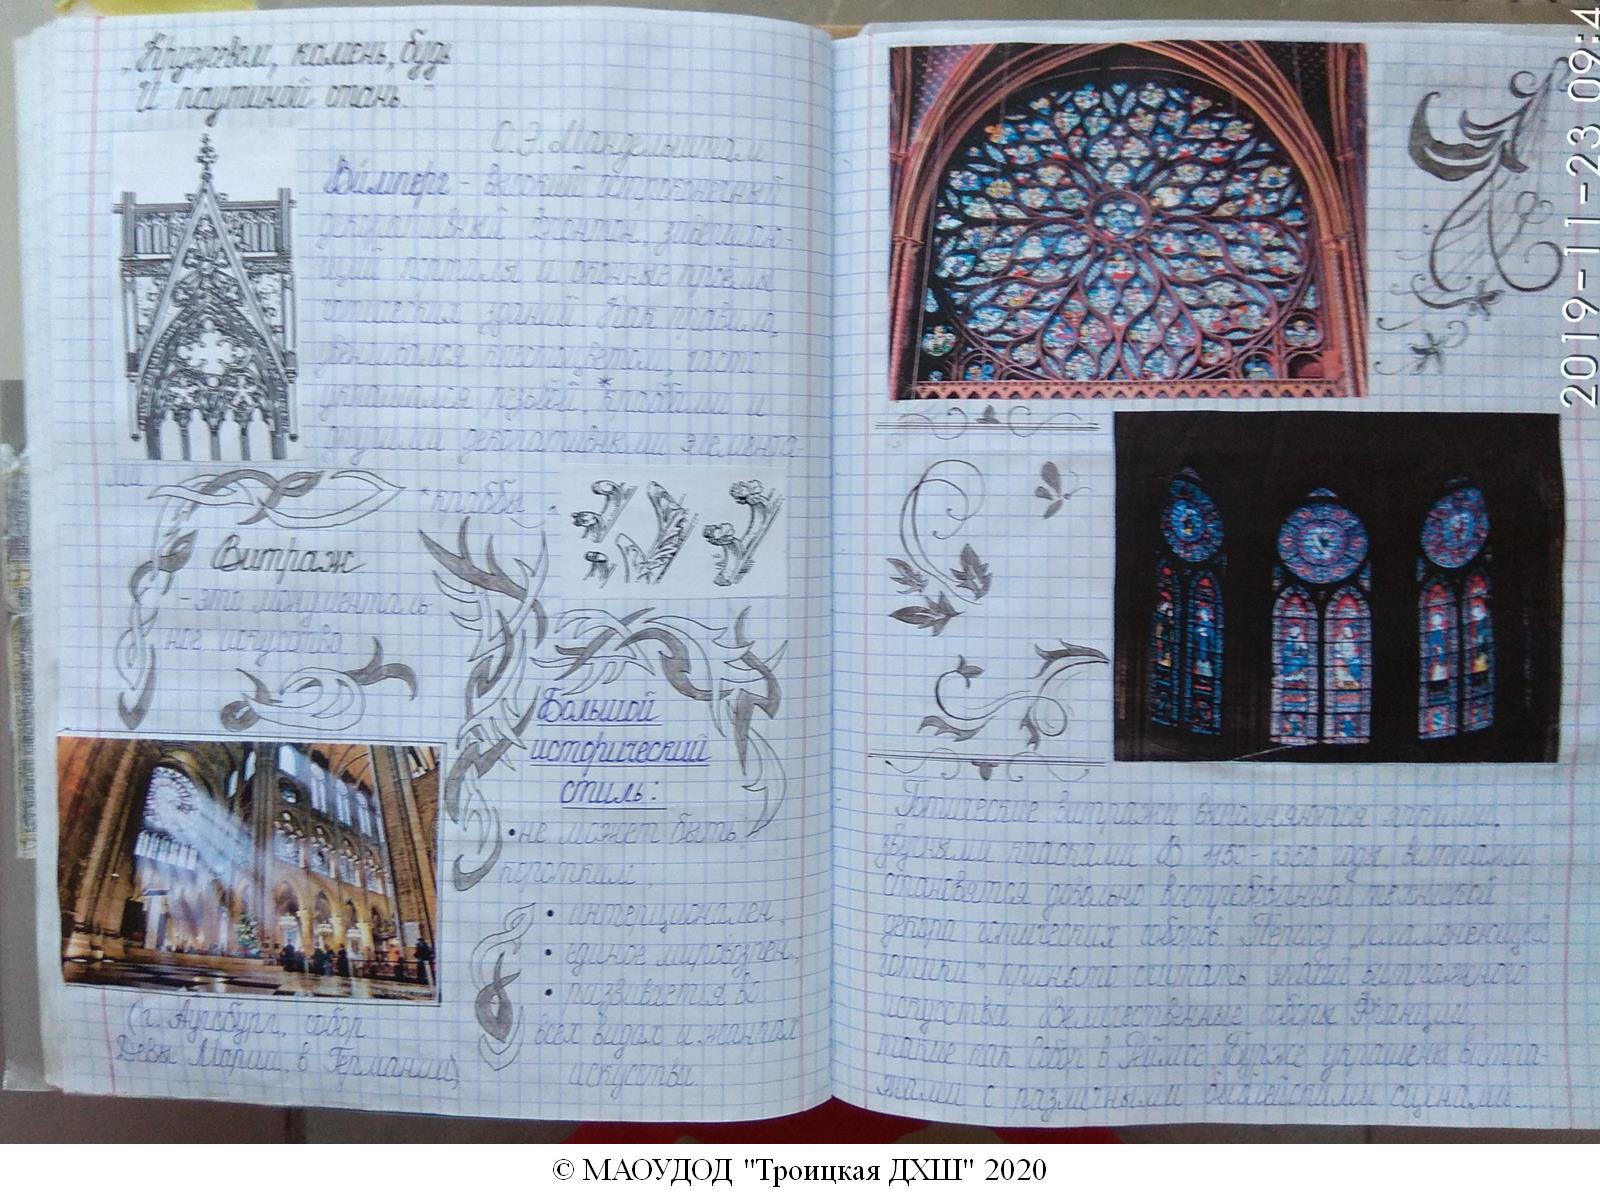 „Кружевом, камень, будь
И паутиной стань."
О.Э. Мандельштам
Вимперг – высокий остроконечный
декоративный фронтон, завершаю-
щий порталы и оконные проёмы
готических зданий. Как правило,
увенчивался крестоцветом, часто
украшался резьбой, *краббами и
другими декоративными элемента-
ми
*краббы
Витраж
- это монументаль-
ное искусство
Большой
исторический
стиль:
• не может быть
коротким,
• интернационален,
• единое мировоззрен.,
• развивается во
всех видах и жанрах
искусства.
(г. Аугсбург, собор
Девы Марии, в Германии)
Готические витражи выполняются яркими,
звучными красками. В 1150-1350 годы витражи
становятся довольно востребованной техникой
декора готических соборов. Период „пламенеющей
готики" принято считать эпохой витражного
искусства. Величественные соборы Франции,
такие как Собор в Реймсе, Бурже украшены витра-
жами с различными библейскими сценами......
2019-11-23 09:4
© МАОУДОД "Троицкая ДХШ" 2020